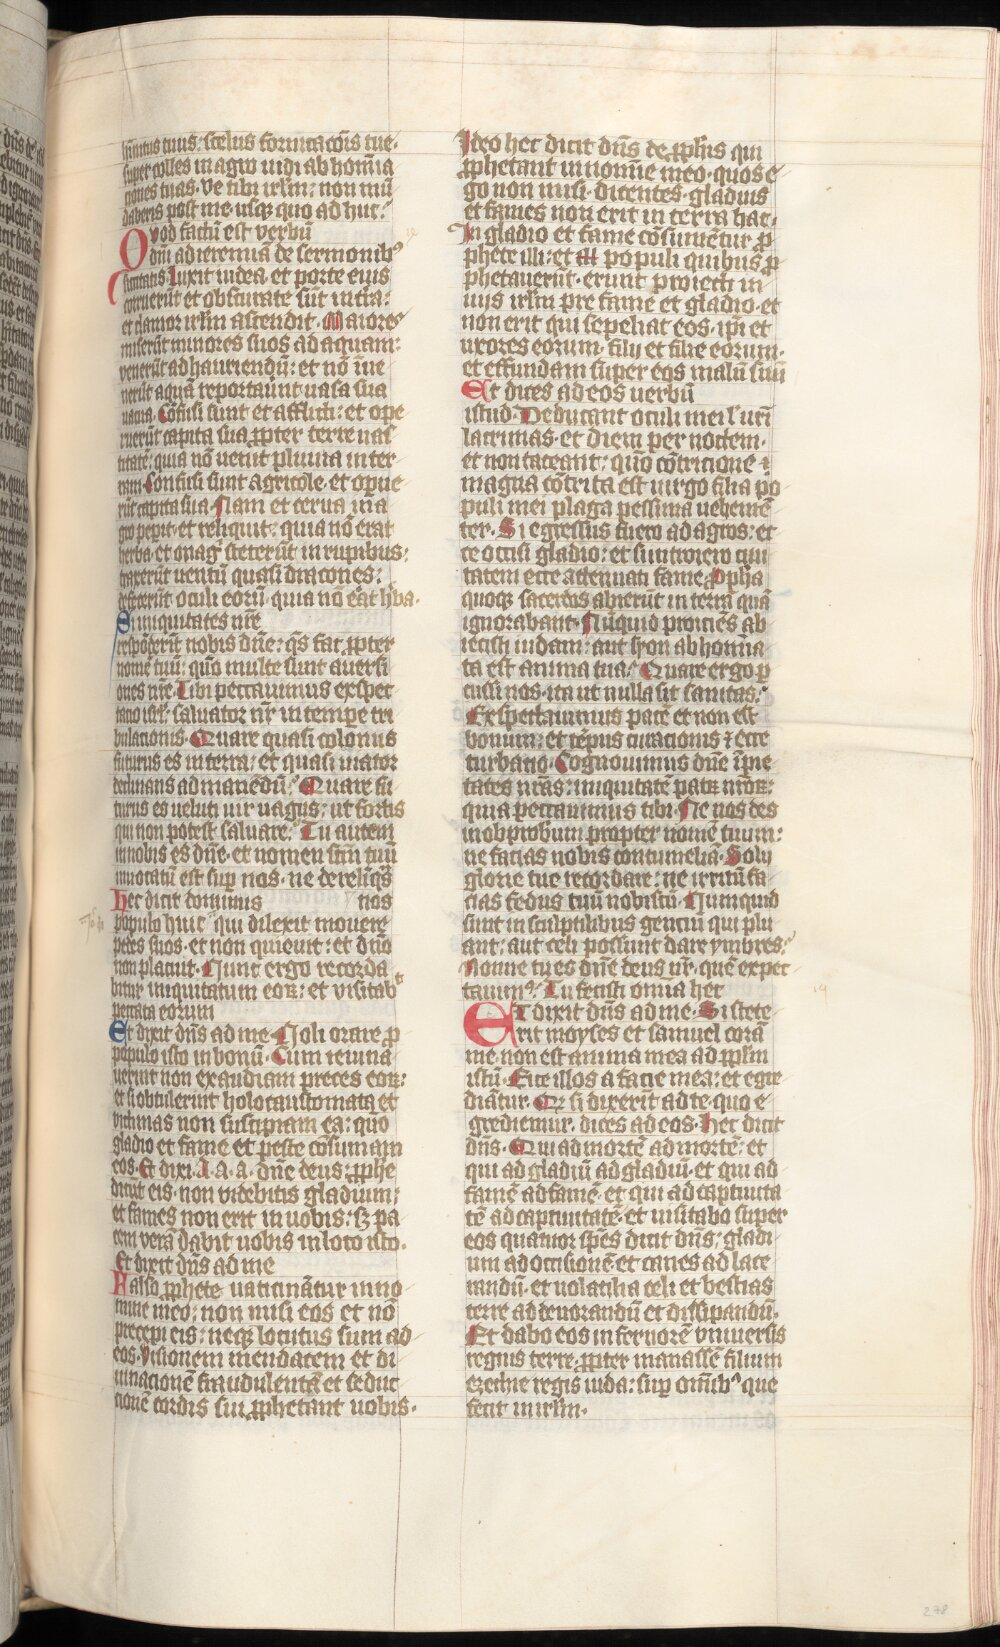 hinnitus tuus: scelus fornicacõis tue·
super colles in agro uidi abhomīa
ciones tuas· Ve tibi irlm: non mū
daberis post me· usqꝫ quo adhuc·
Quod factū est verbū
dñi ad ieremiā de sermonibꝰ
siccitatis· Luxit iudea et porte eius
corruerūt et obscurate sūt in terra:
et clamor irlm ascendit· Maiores
miserūt minores suos ad aquam:
venerūt ad hauriendū: et nō īue
nerūt aquā reportauūt uasa sua
uacua· Cōfusi sunt et afflicti: et ope
ruerūt capita sua ꝓpter terre uas
titatē: quia nō venit pluuia in ter
ram· Confusi sunt agricole· et opue
rūt capita sua· Nam et cerua in a
gro pepit· et reliquit: quia nō erat
herba· et onagͥ steterūt in rupibus:
traxerūt ventū quasi dracones:
defecerūt oculi eorū· quia nō erāt hʼba·
Si iniquitates nr̄e
respōderīt nobis dn̄e: qs̄ fac ꝓpter
nomē tuū: qm̄ multe sunt auersi
ones nr̄e· Tibi peccauimus exspec
tacio isrl̄· saluator nr̄ in tempe tri
bulacionis· Quare quasi colonus
futurus es in terra: et quasi uiator
declinans ad manēdū· Quare fu
turus es veluti uir uagus: ut fortis
qui non potest saluare· Tu autem
in nobis es dn̄e· et nomen scm̄ tuū
inuocatū est suꝑ nos· ne derelīqs̄
Hec dicit dominus nos
populo huic qui dilexit mouere
pedes suos· et non quieuit: et dn̄o
non placuit· Nunc ergo recorda
bitur iniquitatum eoꝝ: et uisitabͭ
peccata eorum
Et dixit dn̄s ad me· Noli orare ꝓ
populo isto in bonū· Cum ieiuna
uerint non exaudiam preces eoꝝ:
et si obtulerint holocaustomata et
victimas non suscipiam ea: qm̄
gladio et fame et peste cōsumam
eos· Et dixi· A· a· a· dn̄e deus: ꝓphe
dicūt eis· non videbitis gladium:
et fames non erit in uobis: sꝫ pa
cem verā dabit uobis in loco isto·
Et dixit dn̄s ad me
Falso ꝓphete uaticinātur in no
mine meo: non misi eos et nō
precepi eis: neqꝫ locutus sum ad
eos· Visionem mendacem et di
uinacionē fraudulentā et seduc
cionē cordis sui ꝓphetant uobis·
Ideo hec dicit dn̄s de ꝓphis qui
ꝓphetant in nomine meo· quos e
go non misi· dicentes· gladius
et fames non erit in terra hac·
In gladio et fame cōsumētur ꝓ
phete illi: et populi quibus ꝓ
phetauerūt· erunt proiecti in
uiis irlm pre fame et gladio· et
non erit qui sepeliat eos· ipi et
uxores eorum· filij et filie eorum·
et effundam super eos malū suū
Et dices ad eos uerbū
istud· Deducant oculi mei
lacrimas· et diem per noctem·
et non taceant: qm̄ cōtricione
magna cōtrita est uirgo filia po
puli mei plaga pessima uehemē
ter· Si egressus fuero ad agros: et
ce occisi gladio: et si introiero ciui
tatem ecce attenuati fame· Ꝓpha
quoqꝫ sacerdos abierūt in terrā quā
ignorabant· Nūquid proiciēs ab
iecisti iudam: aut syon abhomīa
ta est anima tua: Quare ergo ꝑ
cussi nos· ita ut nulla sit sanitas:
Exspectauimus pacē et non est
bonum: et tēpus curacionis ⁊ ecce
turbatio· Cognouimus dn̄e īpie
tates nr̄as: iniquitatē patꝝ nr̄oꝝ:
quia peccauimus tibi· Ne nos des
in obprobrium propter nomē tuum:
ne facias nobis contumeliā· Solij
glorie tue recordare: ne irritū fa
cias fedus tuū nobiscū· Numquid
sunt in sculptilibus gentiū qui plu
ant: aut celi possunt dare ymbres:
Nonne tu es dn̄e deus nr̄· quē expec
tauimꝰ· Tu fecisti omnia hec
Et dixit dn̄s ad me· Si stete
rit moyses et samuel corā
me non est anima mea ad pp̄lm
istū· Eice illos a facie mea: et egre
diātur· Qr si dixerīt ad te· quo e
grediemur· dices ad eos· Hec dicit
dn̄s· Qui ad mortē ad mortē: et
qui ad gladiū ad gladiū· et qui ad
famē ad famē· et qui ad captiuita
tē ad captiuitatē· et uisitabo super
eos quatuor spēs dicit dn̄s: gladi
um ad occisionē· et canes ad lace
randū· et uolatilia celi et bestias
terre ad deuorandū et dissipandū·
Et dabo eos in feruorē vniuersis
regnis terre· ꝓpter manassē filium
ezechie regis iuda: suꝑ om̄ibꝰ que
fecit in irlm·
278